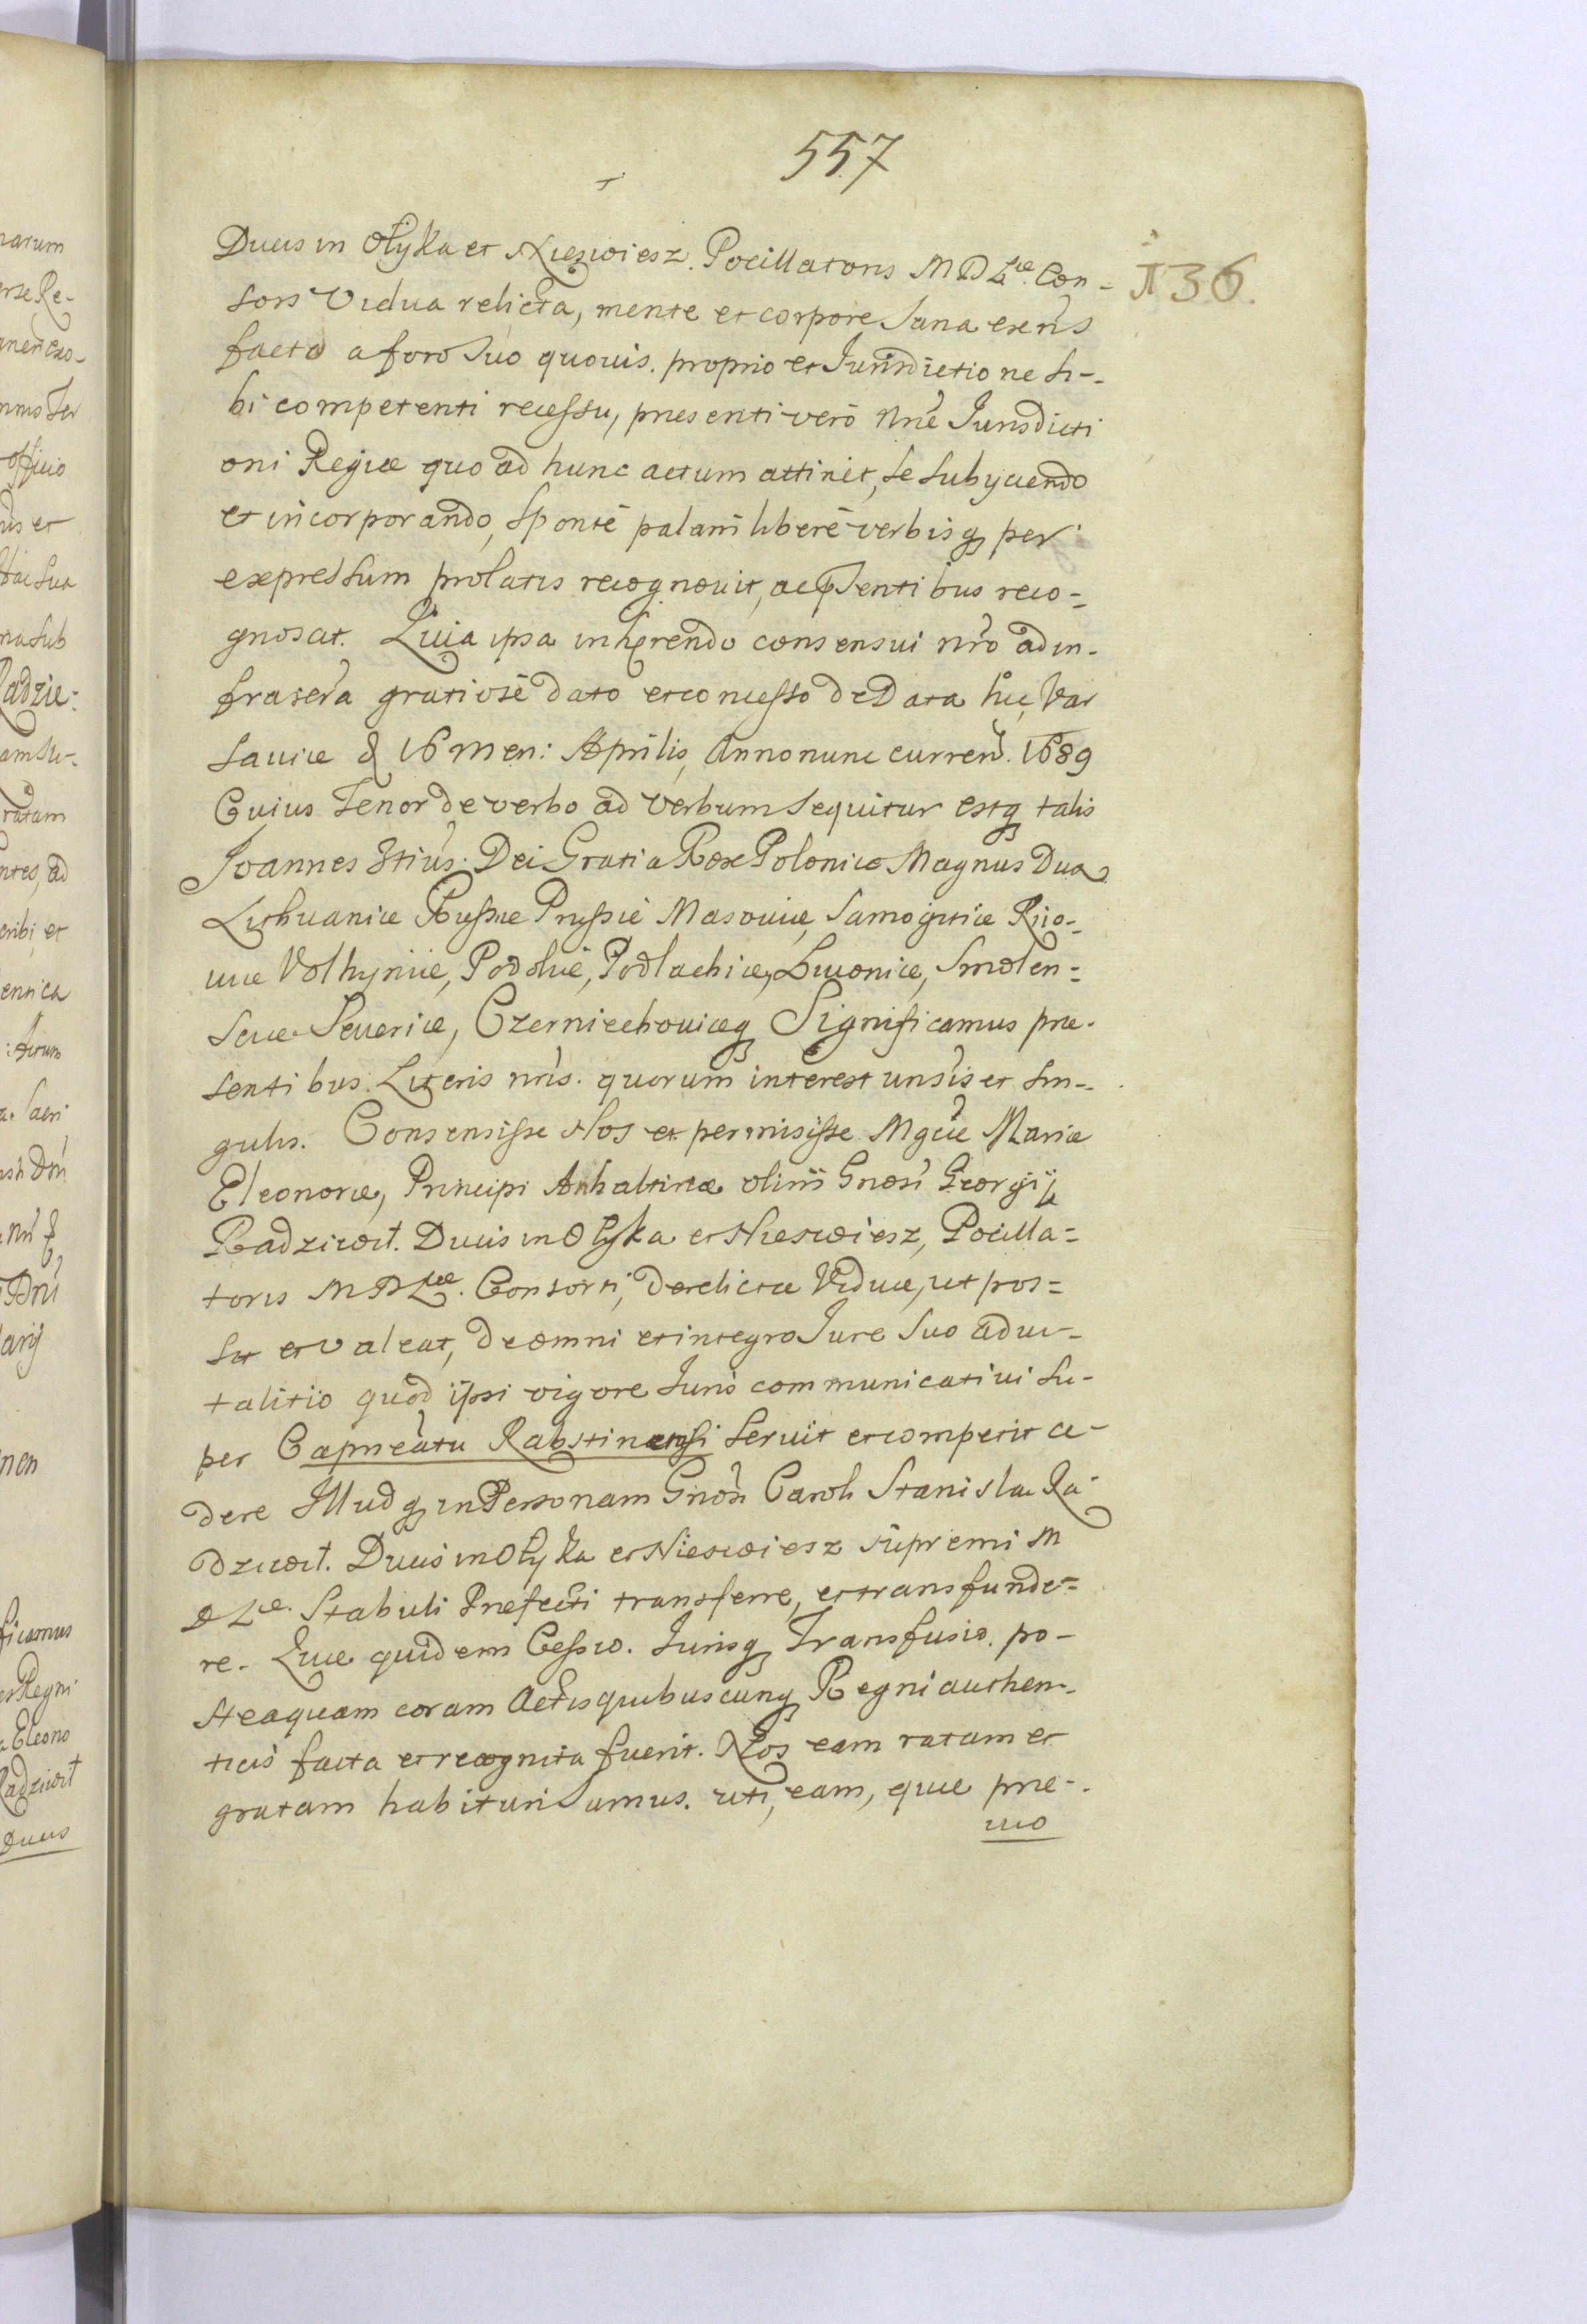 557
Ducis in Ołyka et Nieswiesz. Pocillatoris M D L^ae. Con-
136.
sors Vidua relicta, mente et corpore sana exens
facto a foro suo quovis. proprio et Jurisdictione si-
bi competenti recessu, praesenti verò nrae Jurisdicti
oni Regiae quo ad hunc actum attinet, se subijciendo
et incorporando, sponte palam liberè verbisq per
expressum prolatis recognovit, ac psentibus reco-
gnoscit. Quia ipsa inhęrendo consensui nro ad in-
frascra gratiosè dato et concesso de Data hic Var
saviae d 16 men: Aprilis, Anno nunc curren. 1689
Cuius tenor de verbo ad verbum sequitur estq talis
Joannes 3tius. Dei Gratia Rex Poloniae Magnus Dux
Lithuaniae Russiae Prussiae Masoviae, Samogitiae Kijo-
viae Volhyniae, Podoliae, Podlachiae, Livoniae, Smolen-
sciae Severiae, Czerniechoviaeq Significamus prae-
sentibus Literis nris. quorum interest unsis et sin-
gulis. Consensisse Nos et permisisse Mgcae Mariae
Eleonorae, Principi Anhaltinae olim Gnosi Georgij
Radziwił. Ducis in Ołyka et Nieswiesz, Pocilla-
toris M D L^ae. Consorti, derelictae Viduae, ut pos-
sit et valeat, de omni et integro Jure suo advi-
talitio quod ipsi vigore Juris communicativi su-
per Capneatu Rabstinensi servit et competit ce-
dere Illudq in Personam Gnosi Caroli Stanislai Ra-
dziwił. Ducis in Ołyka et Nieswiesz supremi M
D L^ae. Stabuli Praefecti transferre, et transfunde-
re. Quae quidem Cessio. Jurisq Transfusio. po-
steaquam coram Actis quibuscunq Regni authen-
ticis facta et recognita fuerit. Nos eam ratam et
gratam habituri sumus. uti, eam, quae prae-
vio